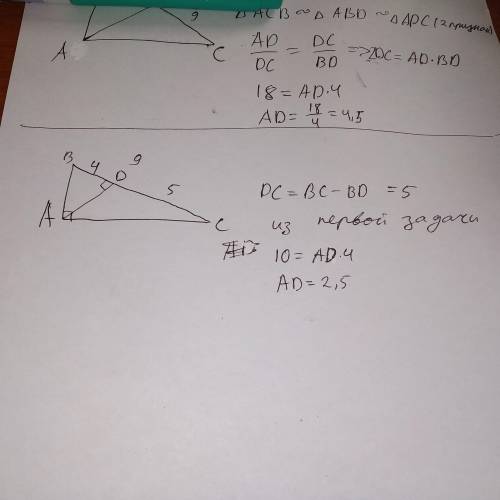 9
A
C
△ACB ~ △ABD ~ △ADC (2 признак)
AD/DC = DC/BD => 2DC = AD·BD
18 = AD·4
AD = 18/4 = 4,5
B 4 9
D 5
A
C
DC = BC - BD = 5
из первой задачи
10 = AD·4
AD = 2,5